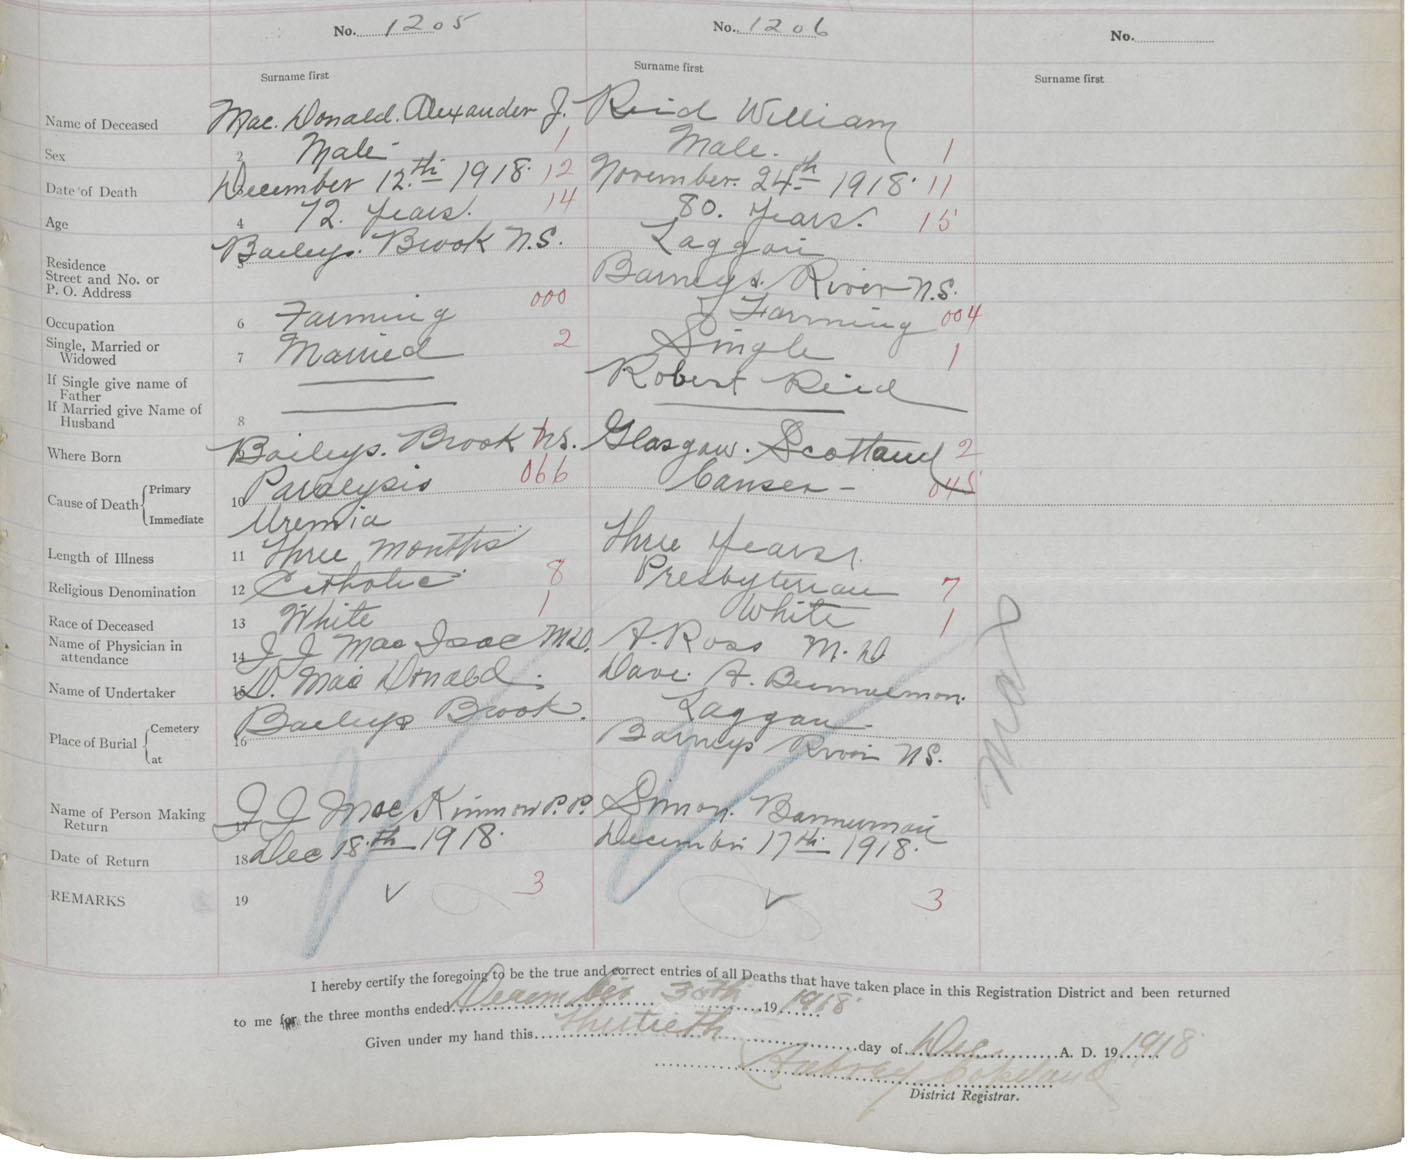 No. 1205
No. 1206
No.
Surname first
Surname first
Surname first
Name of Deceased
Mac. Donald. Alexander J.
Reid William
Sex
2
Male
1
Male.
1
Date of Death
December 12th 1918. 12
November. 24th 1918. 11
Age
4
72. years. 14
80. years. 15
Residence
Street and No. or
P. O. Address
5
Baileys. Brook N.S.
Laggan
Barneys. River N.S.
Occupation
6
Farming 000
Farming 004
Single, Married or
Widowed
7
Married 2
Single 1
If Single give name of
Father
Robert Reid
If Married give Name of
Husband
8
Where Born
Baileys. Brook N.S.
Glasgow. Scotland 2
Cause of Death
Primary
Immediate
10
Paralysis 066
Uremia
Canser - 045
Length of Illness
11
Three Months
Three years.
Religious Denomination
12
Catholic 8
Presbyterian 7
Race of Deceased
13
White 1
White 1
Name of Physician in
attendance
14
J J Mac Isac M.D.
A. Ross M. D
Name of Undertaker
15
D. Mac Donald.
Dave. A.
Place of Burial
Cemetery
at
16
Baileys Brook.
Laggan
Barneys River N.S.
Name of Person Making
Return
17
J J Mac Kinnon P.P.
Simon. Bannerman
Date of Return
18
Dec 18.th 1918.
December 17th 1918.
REMARKS
19
3
3
I hereby certify the foregoing to be the true and correct entries of all Deaths that have taken place in this Registration District and been returned
to me for the three months ended December 30th 19 1918.
Given under my hand this Thirtieth day of Dec A. D. 19 1918
Aubrey Copeland
District Registrar.